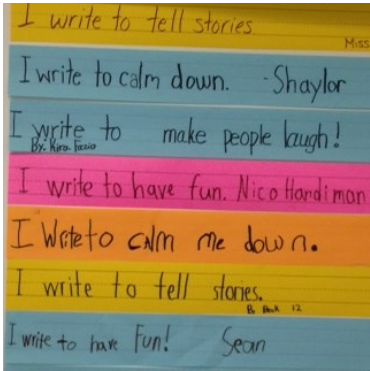 I write to tell stories.
Miss
I write to calm down. -Shaylor
I write to make people laugh!
By: Kira
I write to have fun. Nico Hardiman
I Write to cAlm me down.
I write to tell stories.
12
I write to have Fun! Sean